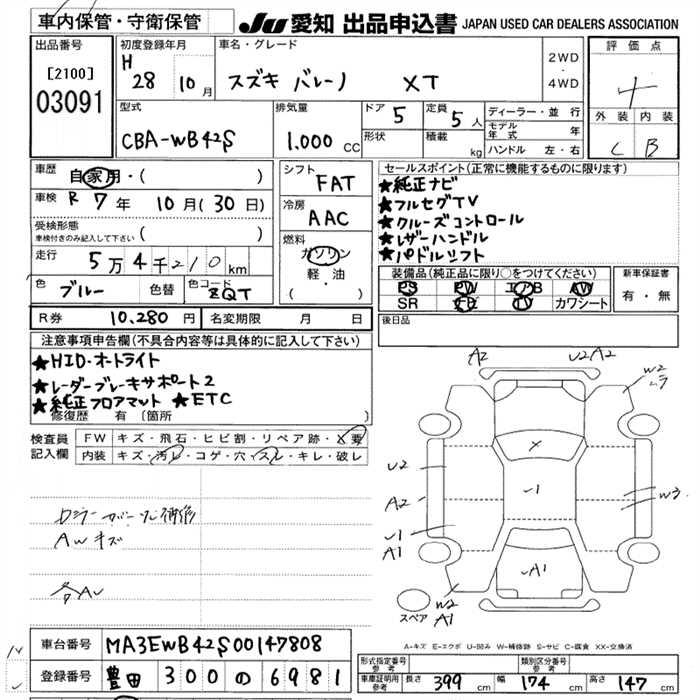 車内保管・守衛保管
JU 愛知 出品申込書 JAPAN USED CAR DEALERS ASSOCIATION
出品番号
[2100]
03091
初度登録年月
H 28 10月
車名・グレード
スズキ バレーノ XT
2WD
・
4WD
評価点
外装 内装
C B
型式
CBA-WB42S
排気量
1.000 CC
ドア 5
形状
定員 5人
積載 kg
ディーラー・並行
モデル年式 年
ハンドル 左・右
車歴
自家用・( )
車検 R 7年 10月(30日)
受検形態
車検付きのみ記入して下さい ( )
走行 5万4千210km
色 ブルー 色替 色コード ZQT
シフト
FAT
冷房
AAC
燃料
ガソリン
軽・油
( )
セールスポイント(正常に機能するものに限ります)
★純正ナビ
★フルセグTV
★クルーズコントロール
★レザーハンドル
★パドルシフト
装備品(純正品に限り○をつけてください)
PS PW エアB AW
SR TV カワシート
新車保証書
有・無
R券 10.280円 名変期限 月 日
後日品
注意事項申告欄(不具合内容等は具体的に記入して下さい)
★HID・オートライト
★レーダーブレーキサポート2
★純正フロアマット ★ETC
修復歴 有 〔箇所 〕
検査員
記入欄
FW キズ・飛石・ヒビ割・リペア跡・X要
内装 キズ・汚レ・コゲ・穴・スレ・キレ・破レ
AWキズ
A2 U2 A2
W2
U2
A2
A1
X
A1
W3
W2
A1
スペア
A-キズ E-エクボ U-凹み W-補修跡 S-サビ C-腐食 XX-交換済
車台番号 MA3EWB42S00147808
登録番号 豊田 300 の 6981
形式指定番号
参考
類別区分番号
参考
車庫証明用
参考
長さ 399 cm 幅 174 cm 高さ 147 cm